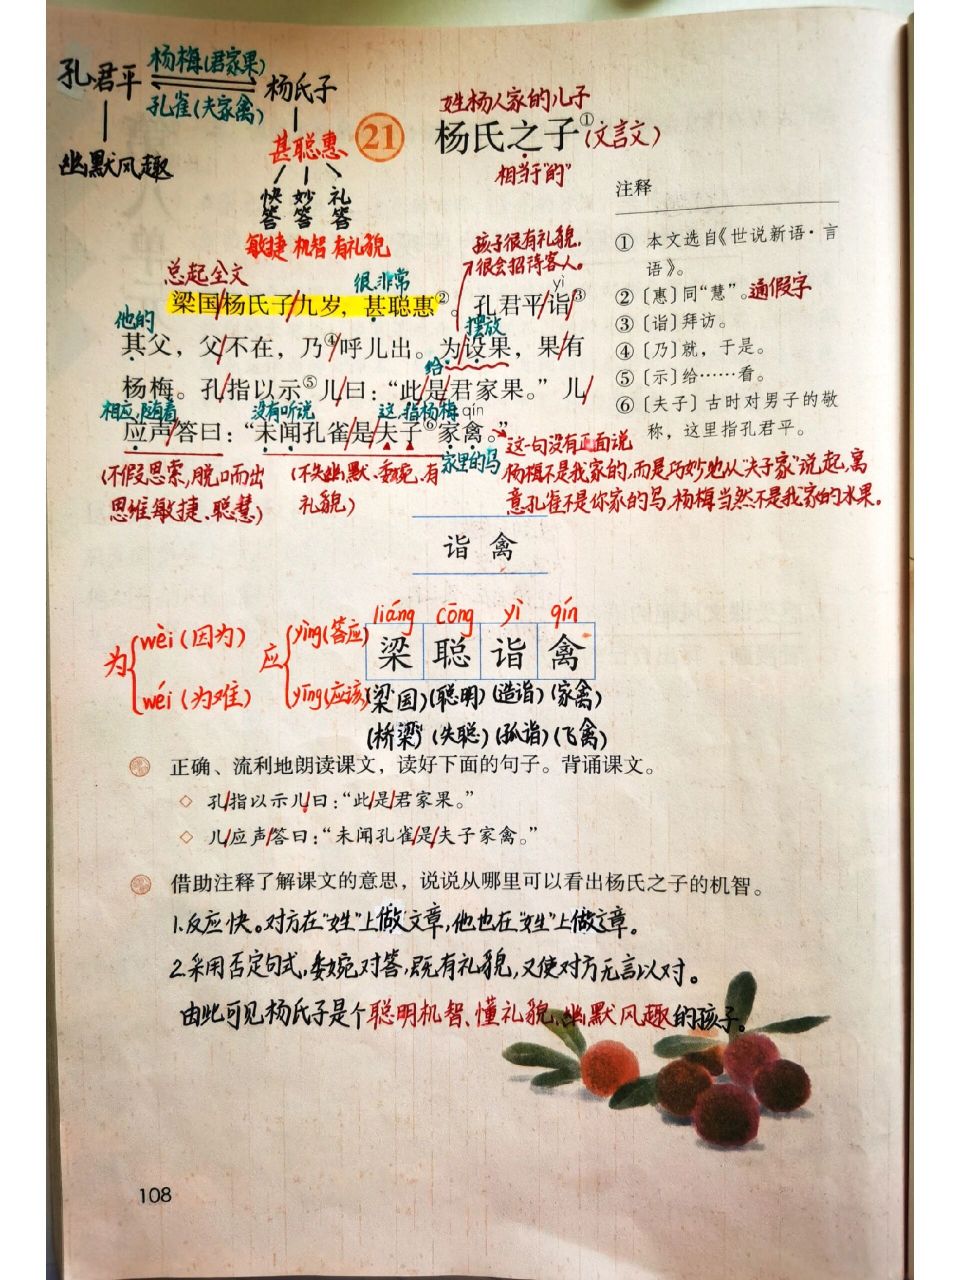 孔君平 杨梅(君家果) 杨氏子
孔雀(夫家禽)
幽默风趣
甚聪惠
快答 妙答 礼答
敏捷 机智 有礼貌
姓杨人家的儿子
21 杨氏之子①(文言文)
相当于"的"
注释
① 本文选自《世说新语·言
语》。
② 〔惠〕同“慧”。通假字
③ 〔诣〕拜访。
④ 〔乃〕就，于是。
⑤ 〔示〕给……看。
⑥ 〔夫子〕古时对男子的敬
称，这里指孔君平。
孩子很有礼貌,
很会招待客人。
总起全文 很,非常 yì
梁国/杨氏子/九岁，甚聪惠②。孔君平/诣/③
他的 摆放
其父，父/不在，乃④/呼儿出。为/设果，果/有
给
杨梅。孔/指以示⑤儿/曰：“此/是/君家果。”儿/
相应,随着 没有听说 这,指杨梅 qín
应声/答曰：“未闻孔雀/是/夫子⑥家禽。”
家里的鸟
(不假思索,脱口而出
思维敏捷、聪慧)
(不失幽默、委婉、有
礼貌)
这一句没有正面说
杨梅不是我家的,而是巧妙地从"夫子家"说起,寓
意孔雀不是你家的鸟,杨梅当然不是我家的水果。
诣 禽
为 wèi(因为) wéi(为难)
应 yìng(答应) yīng(应该)
liáng cōng yì qín
梁 聪 诣 禽
(梁国)(聪明)(造诣)(家禽)
(桥梁)(失聪)(孤诣)(飞禽)
正确、流利地朗读课文，读好下面的句子。背诵课文。
◇ 孔/指以示儿/曰：“此/是/君家果。”
◇ 儿/应声/答曰：“未闻孔雀/是/夫子家禽。”
借助注释了解课文的意思，说说从哪里可以看出杨氏之子的机智。
1.反应快。对方在"姓"上做文章,他也在"姓"上做文章。
2.采用否定句式,委婉对答,既有礼貌,又使对方无言以对。
由此可见杨氏子是个聪明机智、懂礼貌、幽默风趣的孩子。
108